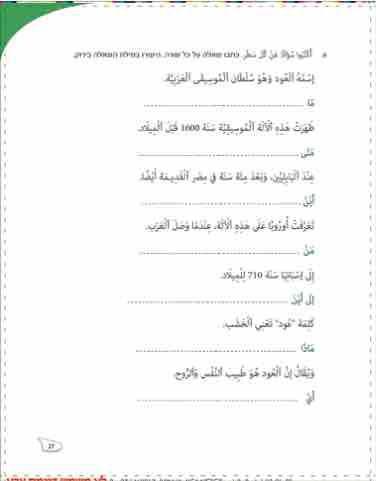 a. اُكْتُبُوا سُؤَالًا عَنْ كُلِّ سَطْرٍ. כתבו שאלה על כל שורה. היעזרו במילת השאלה בירוק.
اِسْمُهُ اَلْعُود وَهُوَ سُلْطَان اَلْمُوسِيقَى الْعَرَبِيَّة.
مَا
ظَهَرَتْ هٰذِهِ اَلْآلَة اَلْمُوسِيقِيَّة سَنَة 1600 قَبْلَ اَلْمِيلَاد.
مَتَى
عِنْدَ اَلْبَابِلِيِّين، وَبَعْدَ مِئَة سَنَة فِي مِصْر اَلْقَدِيمَة أَيْضًا.
أَيْنَ
تَعَرَّفَتْ أُورُوبَّا عَلَى هٰذِهِ اَلْآلَة، عِنْدَمَا وَصَلَ اَلْعَرَب.
مَنْ
إِلَى إِسْبَانْيَا سَنَة 710 لِلْمِيلَاد.
إِلَى أَيْنَ
كَلِمَة "عُود" تَعْنِي اَلْخَشَب.
مَاذَا
وَيُقَالُ إِنَّ اَلْعُود هُوَ طَبِيب اَلنَّفْس وَاَلرُّوح.
أَيّ
27